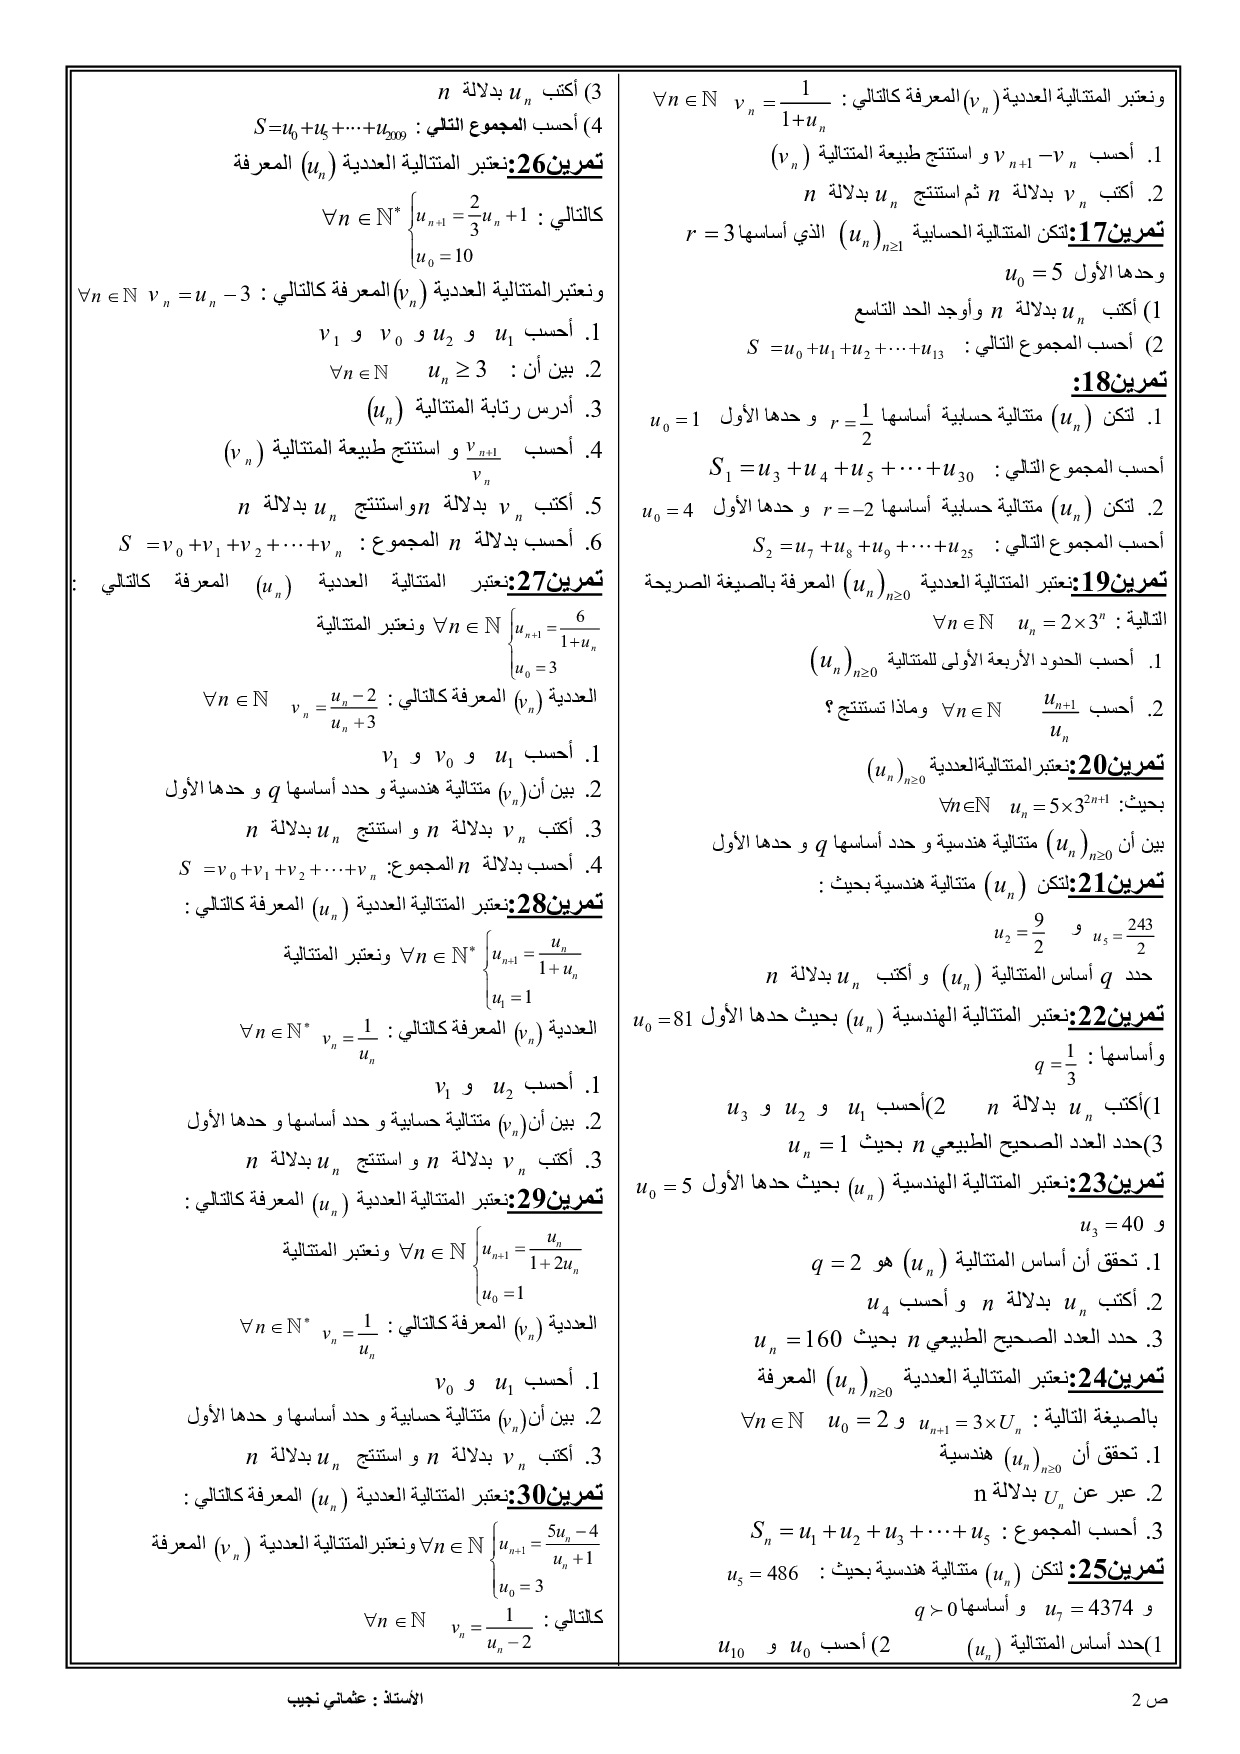 ونعتبر المتتالية العددية (vₙ) المعرفة كالتالي : vₙ = 1/(1+uₙ) ∀n ∈ ℕ
1. أحسب vₙ₊₁ − vₙ و استنتج طبيعة المتتالية (vₙ)
2. أكتب vₙ بدلالة n ثم استنتج uₙ بدلالة n
تمرين17: لتكن المتتالية الحسابية (uₙ)ₙ≥₁ الذي أساسها r = 3
وحدها الأول u₀ = 5
1) أكتب uₙ بدلالة n وأوجد الحد التاسع
2) أحسب المجموع التالي : S = u₀ + u₁ + u₂ + ⋯ + u₁₃
تمرين18:
1. لتكن (uₙ) متتالية حسابية أساسها r = 1/2 و حدها الأول u₀ = 1
أحسب المجموع التالي : S₁ = u₃ + u₄ + u₅ + ⋯ + u₃₀
2. لتكن (uₙ) متتالية حسابية أساسها r = −2 و حدها الأول u₀ = 4
أحسب المجموع التالي : S₂ = u₇ + u₈ + u₉ + ⋯ + u₂₅
تمرين19: نعتبر المتتالية العددية (uₙ)ₙ≥₀ المعرفة بالصيغة الصريحة
التالية : uₙ = 2×3ⁿ ∀n ∈ ℕ
1. أحسب الحدود الأربعة الأولى للمتتالية (uₙ)ₙ≥₀
2. أحسب uₙ₊₁/uₙ ∀n ∈ ℕ وماذا تستنتج ؟
تمرين20: نعتبر المتتالية العددية (uₙ)ₙ≥₀
بحيث: uₙ = 5×3²ⁿ⁺¹ ∀n∈ℕ
بين أن (uₙ)ₙ≥₀ متتالية هندسية و حدد أساسها q و حدها الأول
تمرين21: لتكن (uₙ) متتالية هندسية بحيث :
u₅ = 243/2 و u₂ = 9/2
حدد q أساس المتتالية (uₙ) و أكتب uₙ بدلالة n
تمرين22: نعتبر المتتالية الهندسية (uₙ) بحيث حدها الأول u₀ = 81
وأساسها : q = 1/3
1)أكتب uₙ بدلالة n 2)أحسب u₁ و u₂ و u₃
3)حدد العدد الصحيح الطبيعي n بحيث uₙ = 1
تمرين23: نعتبر المتتالية الهندسية (uₙ) بحيث حدها الأول u₀ = 5
و u₃ = 40
1. تحقق أن أساس المتتالية (uₙ) هو q = 2
2. أكتب uₙ بدلالة n و أحسب u₄
3. حدد العدد الصحيح الطبيعي n بحيث uₙ = 160
تمرين24: نعتبر المتتالية العددية (uₙ)ₙ≥₀ المعرفة
بالصيغة التالية : uₙ₊₁ = 3×Uₙ و u₀ = 2 ∀n ∈ ℕ
1. تحقق أن (uₙ)ₙ≥₀ هندسية
2. عبر عن Uₙ بدلالة n
3. أحسب المجموع : Sₙ = u₁ + u₂ + u₃ + ⋯ + u₅
تمرين25: لتكن (uₙ) متتالية هندسية بحيث : u₅ = 486
و u₇ = 4374 و أساسها q ≻ 0
1)حدد أساس المتتالية (uₙ) 2) أحسب u₀ و u₁₀
3) أكتب uₙ بدلالة n
4) أحسب المجموع التالي : S = u₀ + u₅ + ⋯ + u₂₀₀₉
تمرين26: نعتبر المتتالية العددية (uₙ) المعرفة
كالتالي : { uₙ₊₁ = 2/3 uₙ + 1 ; u₀ = 10 ∀n ∈ ℕ*
ونعتبر المتتالية العددية (vₙ) المعرفة كالتالي : vₙ = uₙ − 3 ∀n ∈ ℕ
1. أحسب u₁ و u₂ و v₀ و v₁
2. بين أن : uₙ ≥ 3 ∀n ∈ ℕ
3. أدرس رتابة المتتالية (uₙ)
4. أحسب vₙ₊₁/vₙ و استنتج طبيعة المتتالية (vₙ)
5. أكتب vₙ بدلالة n واستنتج uₙ بدلالة n
6. أحسب بدلالة n المجموع : S = v₀ + v₁ + v₂ + ⋯ + vₙ
تمرين27: نعتبر المتتالية العددية (uₙ) المعرفة كالتالي :
{ uₙ₊₁ = 6/(1+uₙ) ; u₀ = 3 ∀n ∈ ℕ ونعتبر المتتالية
العددية (vₙ) المعرفة كالتالي : vₙ = (uₙ − 2)/(uₙ + 3) ∀n ∈ ℕ
1. أحسب u₁ و v₀ و v₁
2. بين أن (vₙ) متتالية هندسية و حدد أساسها q و حدها الأول
3. أكتب vₙ بدلالة n و استنتج uₙ بدلالة n
4. أحسب بدلالة n المجموع: S = v₀ + v₁ + v₂ + ⋯ + vₙ
تمرين28: نعتبر المتتالية العددية (uₙ) المعرفة كالتالي :
{ uₙ₊₁ = uₙ/(1+uₙ) ; u₁ = 1 ∀n ∈ ℕ* ونعتبر المتتالية
العددية (vₙ) المعرفة كالتالي : vₙ = 1/uₙ ∀n ∈ ℕ*
1. أحسب u₂ و v₁
2. بين أن (vₙ) متتالية حسابية و حدد أساسها و حدها الأول
3. أكتب vₙ بدلالة n و استنتج uₙ بدلالة n
تمرين29: نعتبر المتتالية العددية (uₙ) المعرفة كالتالي :
{ uₙ₊₁ = uₙ/(1+2uₙ) ; u₀ = 1 ∀n ∈ ℕ ونعتبر المتتالية
العددية (vₙ) المعرفة كالتالي : vₙ = 1/uₙ ∀n ∈ ℕ*
1. أحسب u₁ و v₀
2. بين أن (vₙ) متتالية حسابية و حدد أساسها و حدها الأول
3. أكتب vₙ بدلالة n و استنتج uₙ بدلالة n
تمرين30: نعتبر المتتالية العددية (uₙ) المعرفة كالتالي :
{ uₙ₊₁ = (5uₙ − 4)/(uₙ + 1) ; u₀ = 3 ∀n ∈ ℕ ونعتبر المتتالية العددية (vₙ) المعرفة
كالتالي : vₙ = 1/(uₙ − 2) ∀n ∈ ℕ
ص 2
الأستاذ : عثماني نجيب